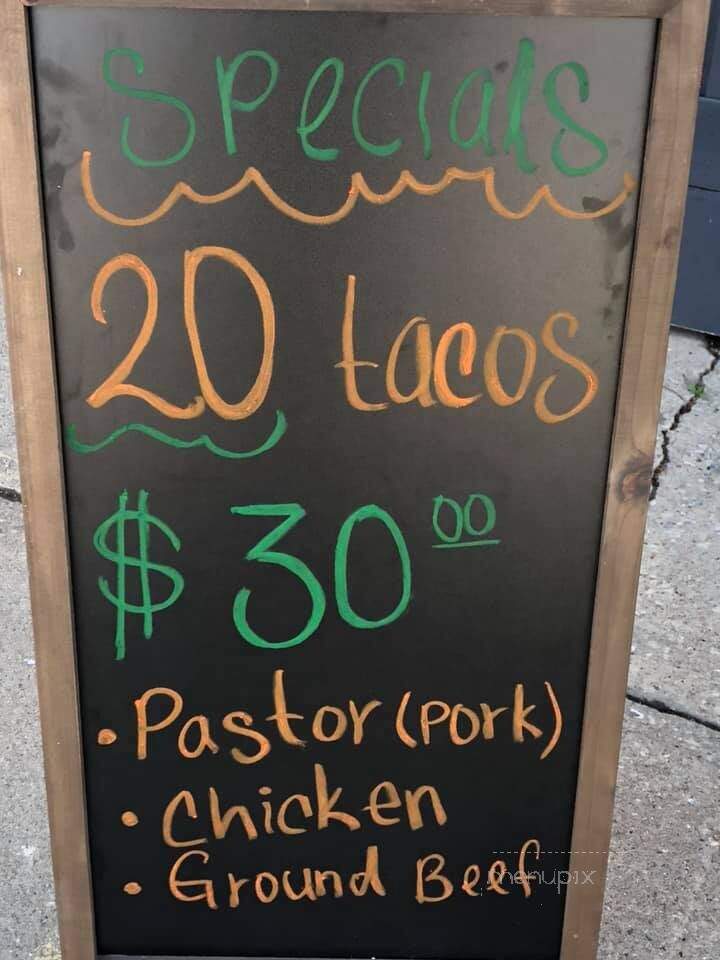 Specials
20 tacos
$30.00
• Pastor (Pork)
• Chicken
• Ground Beef
menupix